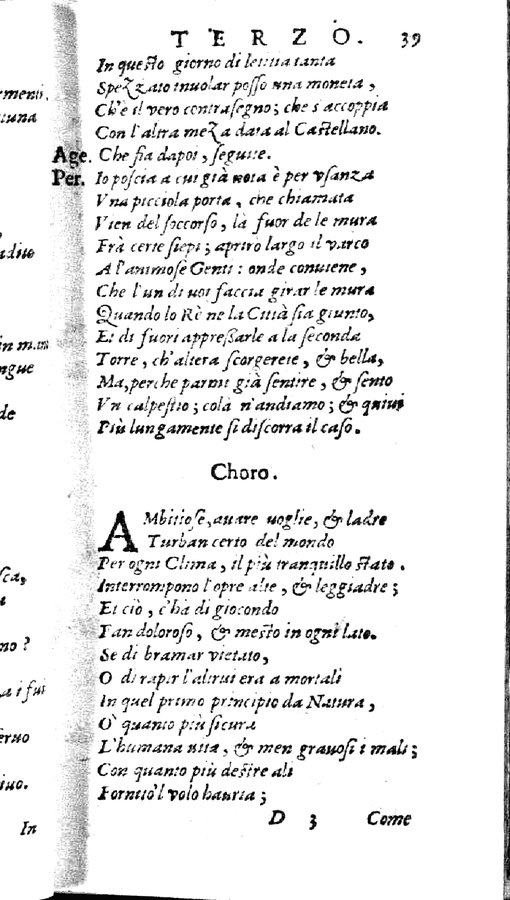 TERZO. 39
In questo giorno di letitia tanta
Spezzato inuolar posso una moneta,
Ch'è il vero contrasegno; che s'accoppia
Con l'altra meza data al Castellano.
Age. Che fia dapoi, seguite.
Per. Io poscia a cui già nota è per vsanza
Vna picciola porta, che chiamata
Vien del soccorso, là fuor de le mura
Frà certe siepi; apriro largo il varco
A l'animose Genti: onde conuiene,
Che l'un di uoi faccia girar le mura
Quando lo Rè ne la Città sia giunto,
Et di fuori appressarle a la seconda
Torre, ch'altera scorgerete, & bella,
Ma, perche parmi già sentire, & sento
Vn calpestio; colà n'andiamo; & quiui
Più lungamente si discorra il caso.
Choro.
AMbitiose, auare uoglie, & ladre
Turban certo del mondo
Per ogni Clima, il più tranquillo stato.
Interrompono l'opre alte, & leggiadre;
Et ciò, c'hà di giocondo
Fan doloroso, & mesto in ogni lato.
Se di bramar vietato,
O di rapir l'altrui era a mortali
In quel primo principio da Natura,
O' quanto più sicura
L'humana uita, & men grauosi i mali;
Con quanto più destre ali
Fornito'l volo hauria;
D 3 Come
rmenti.
tuna
adito
in man
ngue
de
sca,
no?
a i fui
ferno
iuo.
In